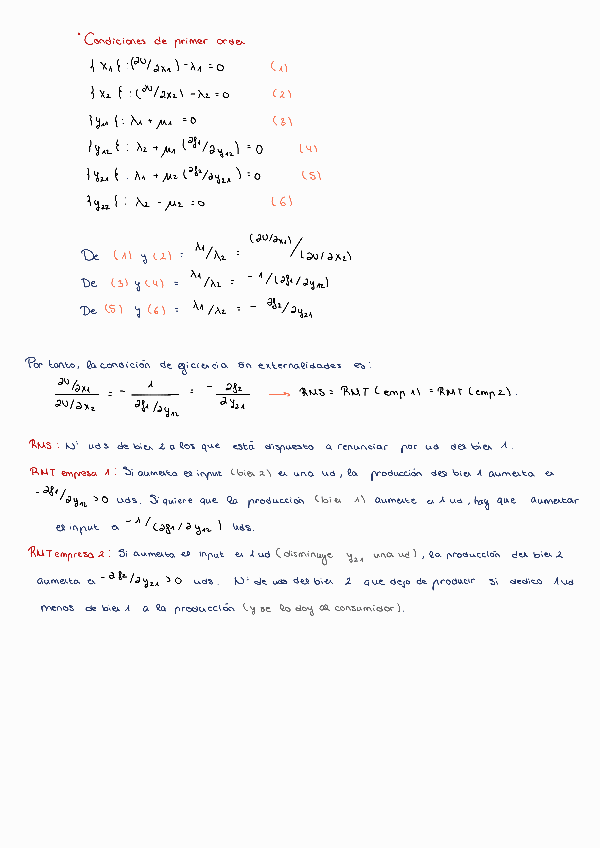 · Condiciones de primer orden
{x₁} : (∂U/∂x₁) - λ₁ = 0 (1)
{x₂} : (∂U/∂x₂) - λ₂ = 0 (2)
{y₁₁} : λ₁ + μ₁ = 0 (3)
{y₁₂} : λ₂ + μ₁ (∂f₁/∂y₁₂) = 0 (4)
{y₂₁} : λ₁ + μ₂ (∂f₂/∂y₂₁) = 0 (5)
{y₂₂} : λ₂ - μ₂ = 0 (6)
De (1) y (2) = λ₁/λ₂ = (∂U/∂x₁)/(∂U/∂x₂)
De (3) y (4) = λ₁/λ₂ = - 1/(∂f₁/∂y₁₂)
De (5) y (6) = λ₁/λ₂ = - ∂f₂/∂y₂₁
Por tanto, la condición de eficiencia sin externalidades es:
(∂U/∂x₁)/(∂U/∂x₂) = - 1/(∂f₁/∂y₁₂) = - ∂f₂/∂y₂₁ → RMS = RMT (emp 1) = RMT (emp 2).
RMS : Nº uds de bien 2 a los que está dispuesto a renunciar por ud del bien 1.
RMT empresa 1 : Si aumenta el input (bien 2) en una ud, la producción del bien 1 aumenta en
-∂f₁/∂y₁₂ > 0 uds. Si quiere que la producción (bien 1) aumente en 1 ud, hay que aumentar
el input a -1/(∂f₁/∂y₁₂) uds.
RMT empresa 2 : Si aumenta el input en 1 ud (disminuye y₂₁ una ud), la producción del bien 2
aumenta en -∂f₂/∂y₂₁ > 0 uds. Nº de uds del bien 2 que dejo de producir si dedico 1 ud
menos de bien 1 a la producción (y se lo doy al consumidor).